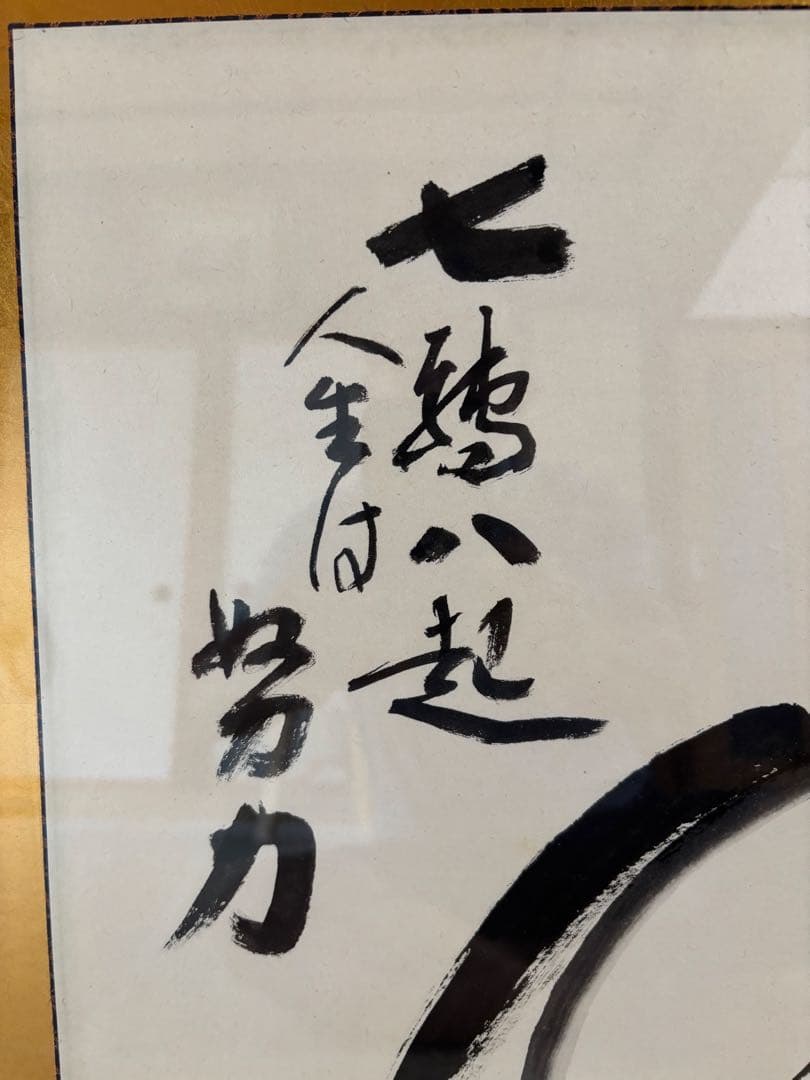 七転八起
人生は
努力